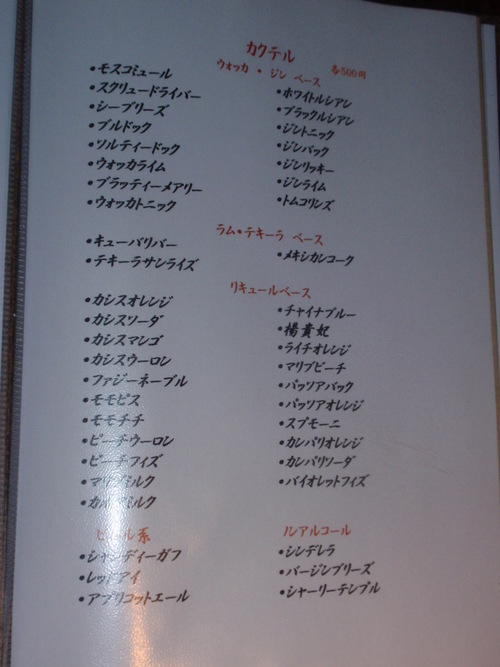 カクテル
各500円
ウォッカ・ジン ベース
・モスコミュール
・スクリュードライバー
・シーブリーズ
・ブルドック
・ソルティードック
・ウォッカライム
・ブラッティーメアリー
・ウォッカトニック
・ホワイトルシアン
・ブラックルシアン
・ジントニック
・ジンバック
・ジンリッキー
・ジンライム
・トムコリンズ
ラム・テキーラ ベース
・キューバリバー
・テキーラサンライズ
・メキシカンコーク
リキュールベース
・カシスオレンジ
・カシスソーダ
・カシスマンゴ
・カシスウーロン
・ファジーネーブル
・モモピス
・モモチチ
・ピーチウーロン
・ピーチフィズ
・マリブミルク
・カルアミルク
・チャイナブルー
・楊貴妃
・ライチオレンジ
・マリブピーチ
・パッソアバック
・パッソアオレンジ
・スプモーニ
・カンパリオレンジ
・カンパリソーダ
・バイオレットフィズ
ビール系
・シャンディーガフ
・レッドアイ
・アプリコットエール
ノンアルコール
・シンデレラ
・バージンブリーズ
・シャーリーテンプル